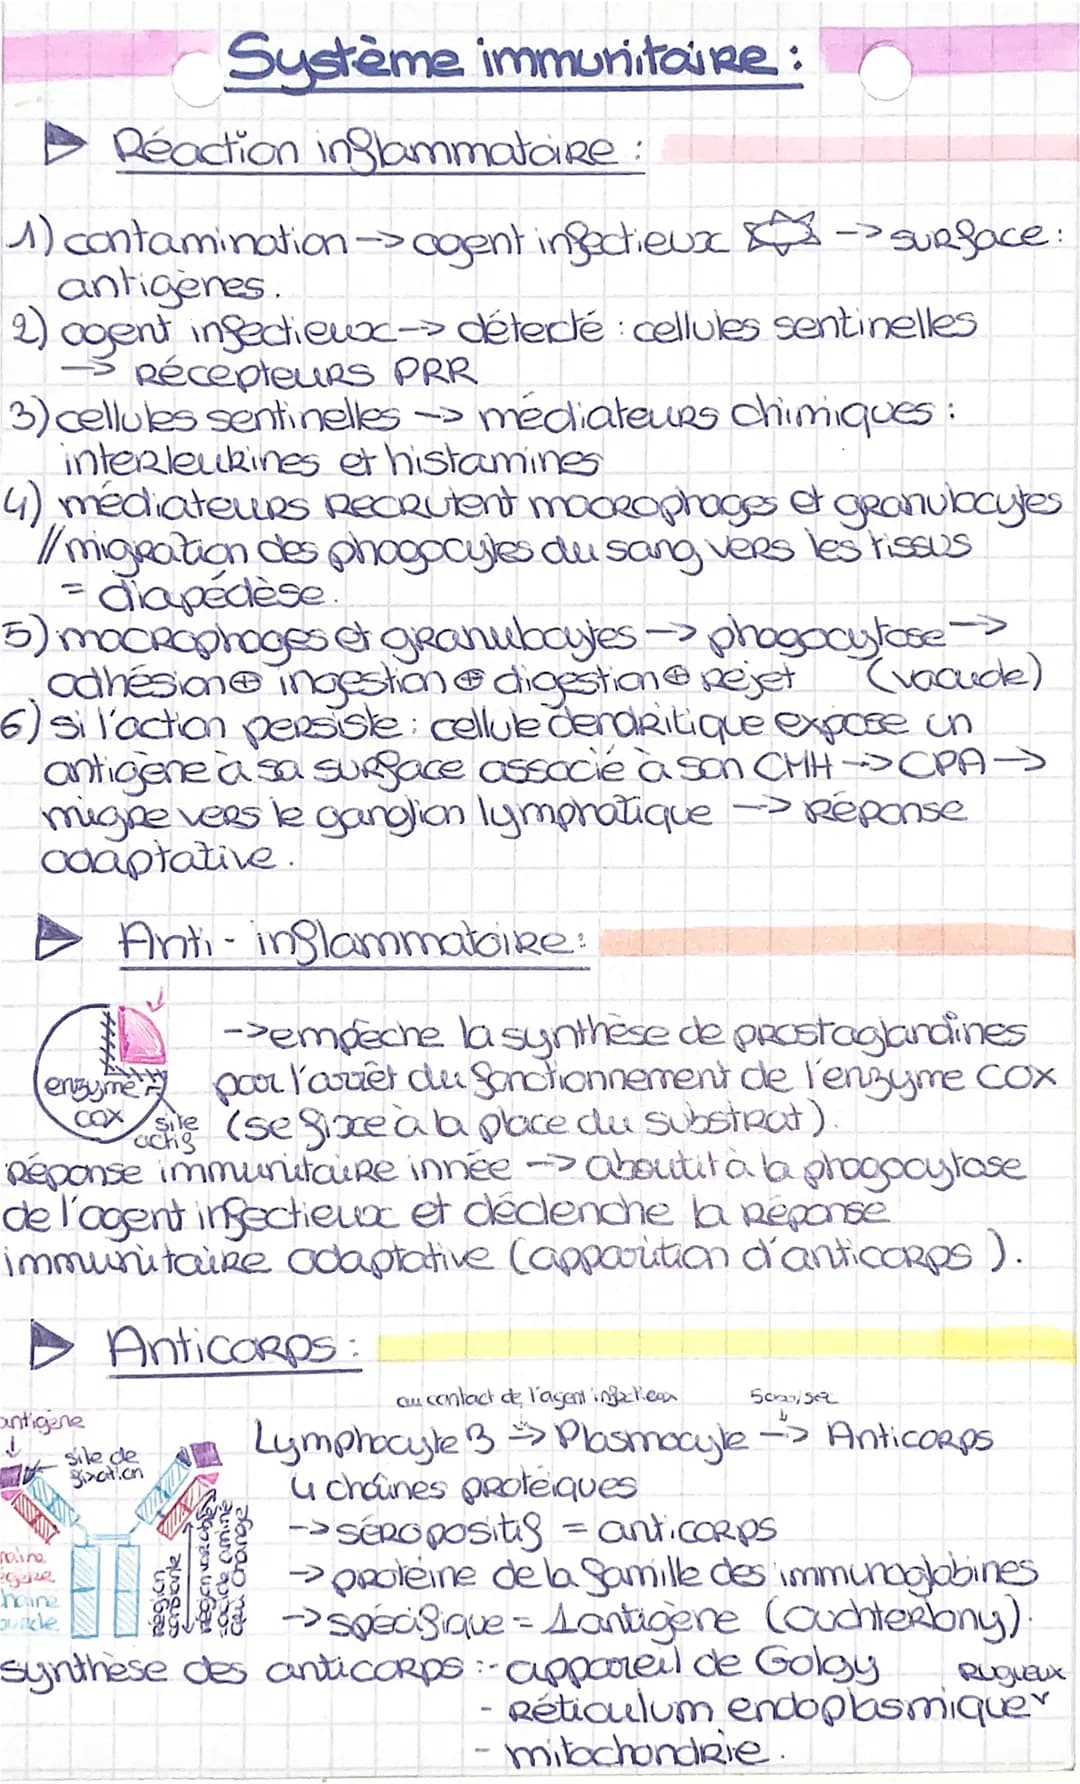 Système immunitaire :
Réaction inflammatoire :
1) contamination -> agent infectieux -> surface :
antigènes.
2) agent infectieux -> détecté : cellules sentinelles
-> récepteurs PRR
3) cellules sentinelles -> médiateurs chimiques :
interleukines et histamines
4) médiateurs recrutent macrophages et granulocytes
// migration des phagocytes du sang vers les tissus
= diapédèse.
5) macrophages et granulocytes -> phagocytose ->
adhésion ⊕ ingestion ⊕ digestion ⊕ rejet (vacuole)
6) si l'action persiste : cellule dendritique expose un
antigène à sa surface associé à son CMH -> CPA ->
migre vers le ganglion lymphatique -> réponse
adaptative.
Anti-inflammatoire :
enzyme
cox
site
actif
-> empêche la synthèse de prostaglandines
par l'arrêt du fonctionnement de l'enzyme COX
(se fixe à la place du substrat).
Réponse immunitaire innée -> aboutit à la phagocytose
de l'agent infectieux et déclenche la réponse
immunitaire adaptative (apparition d'anticorps).
Anticorps :
au contact de l'agent infectieux
5000/sec
Lymphocyte B -> Plasmocyte -> Anticorps
antigène
site de
fixation
région
constante
région variable
acide aminé
qui change
4 chaînes protéiques
-> séropositif = anticorps
-> protéine de la famille des immunoglobines
-> spécifique = 1 antigène (ouchterlony).
synthèse des anticorps : - appareil de Golgy
- Réticulum endoplasmique rugueux
- mitochondrie.